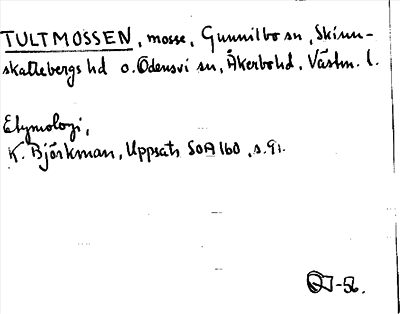 TULTMOSSEN, mosse, Gunnilbo sn, Skinn-
skattebergs hd o. Odensvi sn, Åkerbo hd, Västm. l.
Etymologi,
K. Björkman, Uppsats SOA 160, s. 91.
-56.